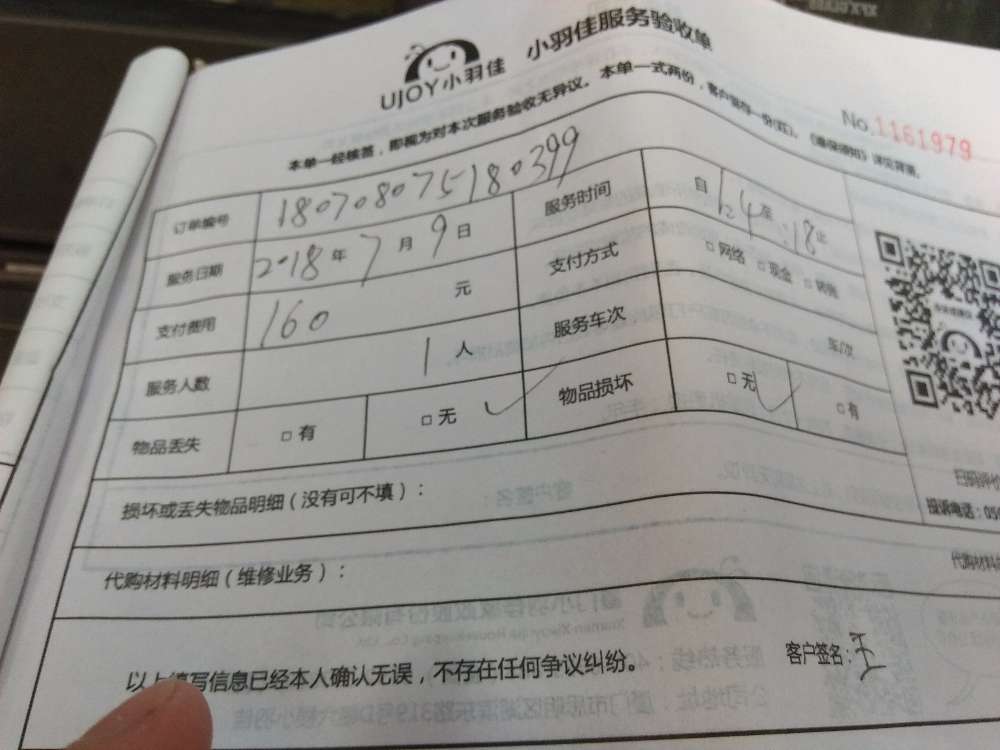 UJOY小羽佳 小羽佳服务验收单
本单一经核签，即视为对本次服务验收无异议。本单一式两份，客户留存一份(红)。《维保须知》详见背面。
No.1161979
订单编号 180708075180399 服务时间 自 至 :18止
服务日期 2018年7月9日 支付方式 □网络 □现金 □转账
支付费用 160 元 服务车次 车/次
服务人数 1人
物品丢失 □有 □无 ✓ 物品损坏 □无 ✓ □有
损坏或丢失物品明细（没有可不填）：
代购材料明细（维修业务）：
扫码评价
投诉电话：05
代购材料
以上填写信息已经本人确认无误，不存在任何争议纠纷。
客户签名：王